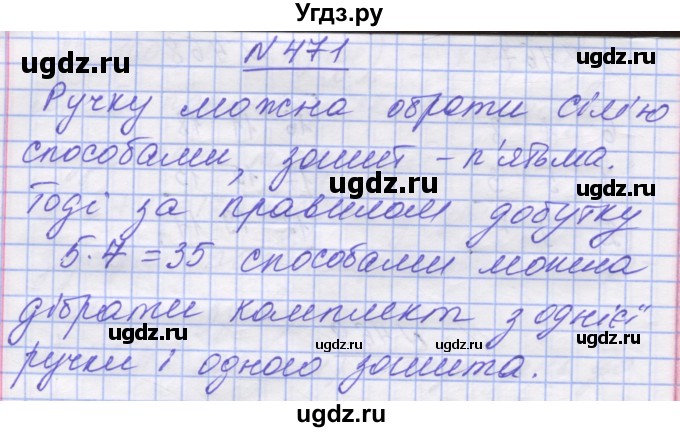 Угдз.ру
N 471
ugdz.ru ugdz.ru
Ручку можна обрати сімю
способами, зошит – п'ятьма.
ugdz.ru ugdz.ru
Тоді за правилом добутку
5·7=35 способами можна
дібрати комплект з однієї
ugdz.ru ugdz.ru
ручки і одного зошита.
ugdz.ru